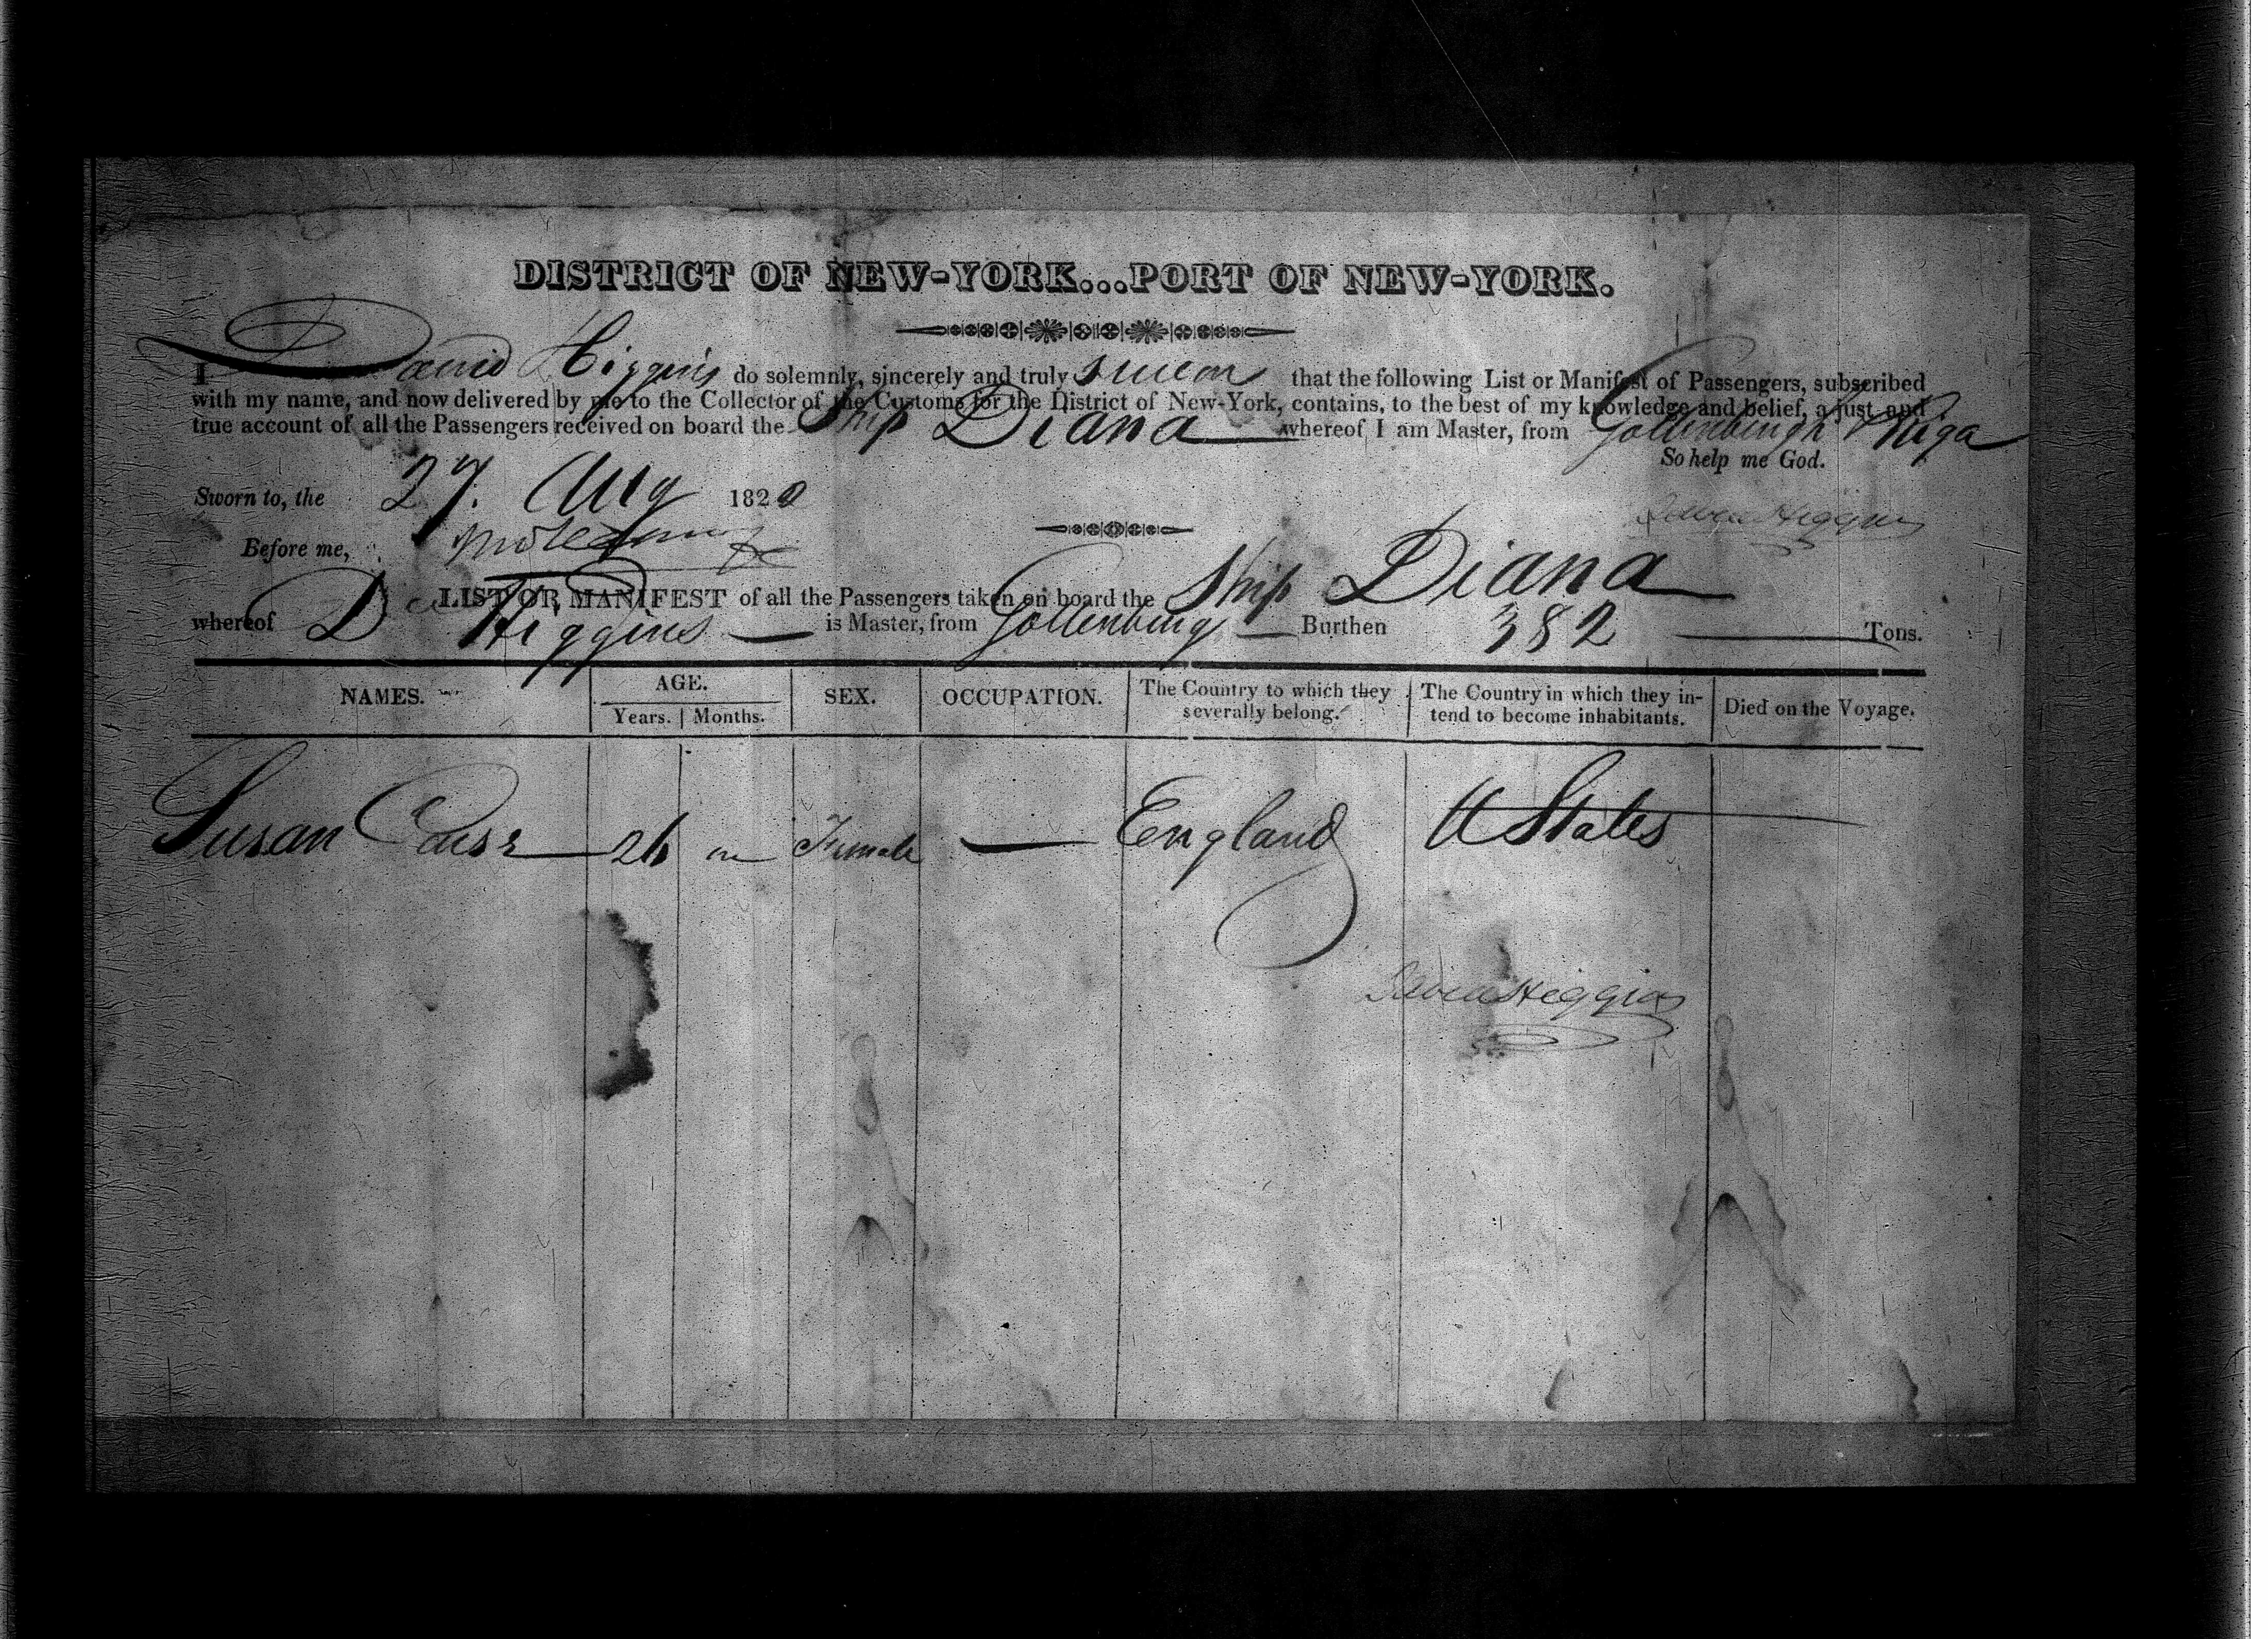 DISTRICT OF NEW-YORK...PORT OF NEW-YORK.
I David Higgins do solemnly, sincerely and truly swear that the following List or Manifest of Passengers, subscribed
with my name, and now delivered by me to the Collector of the Customs for the District of New-York, contains, to the best of my knowledge and belief, a just and
true account of all the Passengers received on board the Ship Diana whereof I am Master, from Gottenburgh & Riga
So help me God.
Sworn to, the 27. Aug 1820
David Higgins
Before me,
LIST OR MANIFEST of all the Passengers taken on board the Ship Diana
whereof D Higgins is Master, from Gottenburg Burthen 382 Tons.
NAMES. AGE. SEX. OCCUPATION. The Country to which they severally belong. The Country in which they intend to become inhabitants. Died on the Voyage.
Years. Months.
Susan 26 Female — England U States
David Higgins